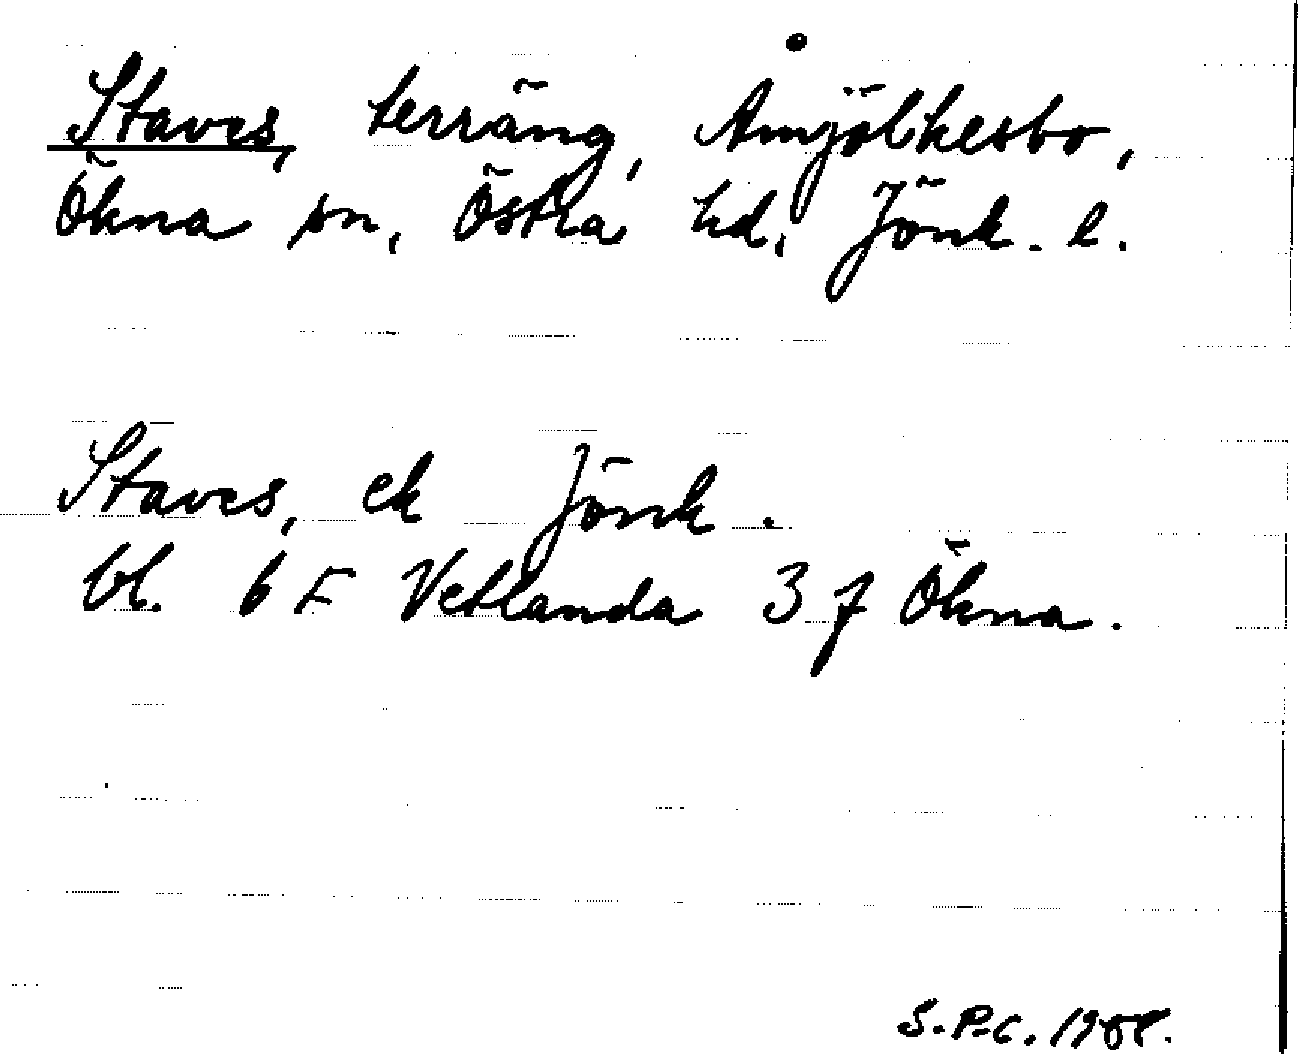 Staves, terräng, Amjölkesbo,
Ökna sn, Östra hd, Jönk. l.
Staves, ek Jönk.
bl. 6 F Vetlanda 3 f Ökna.
S.P.C. 1958.